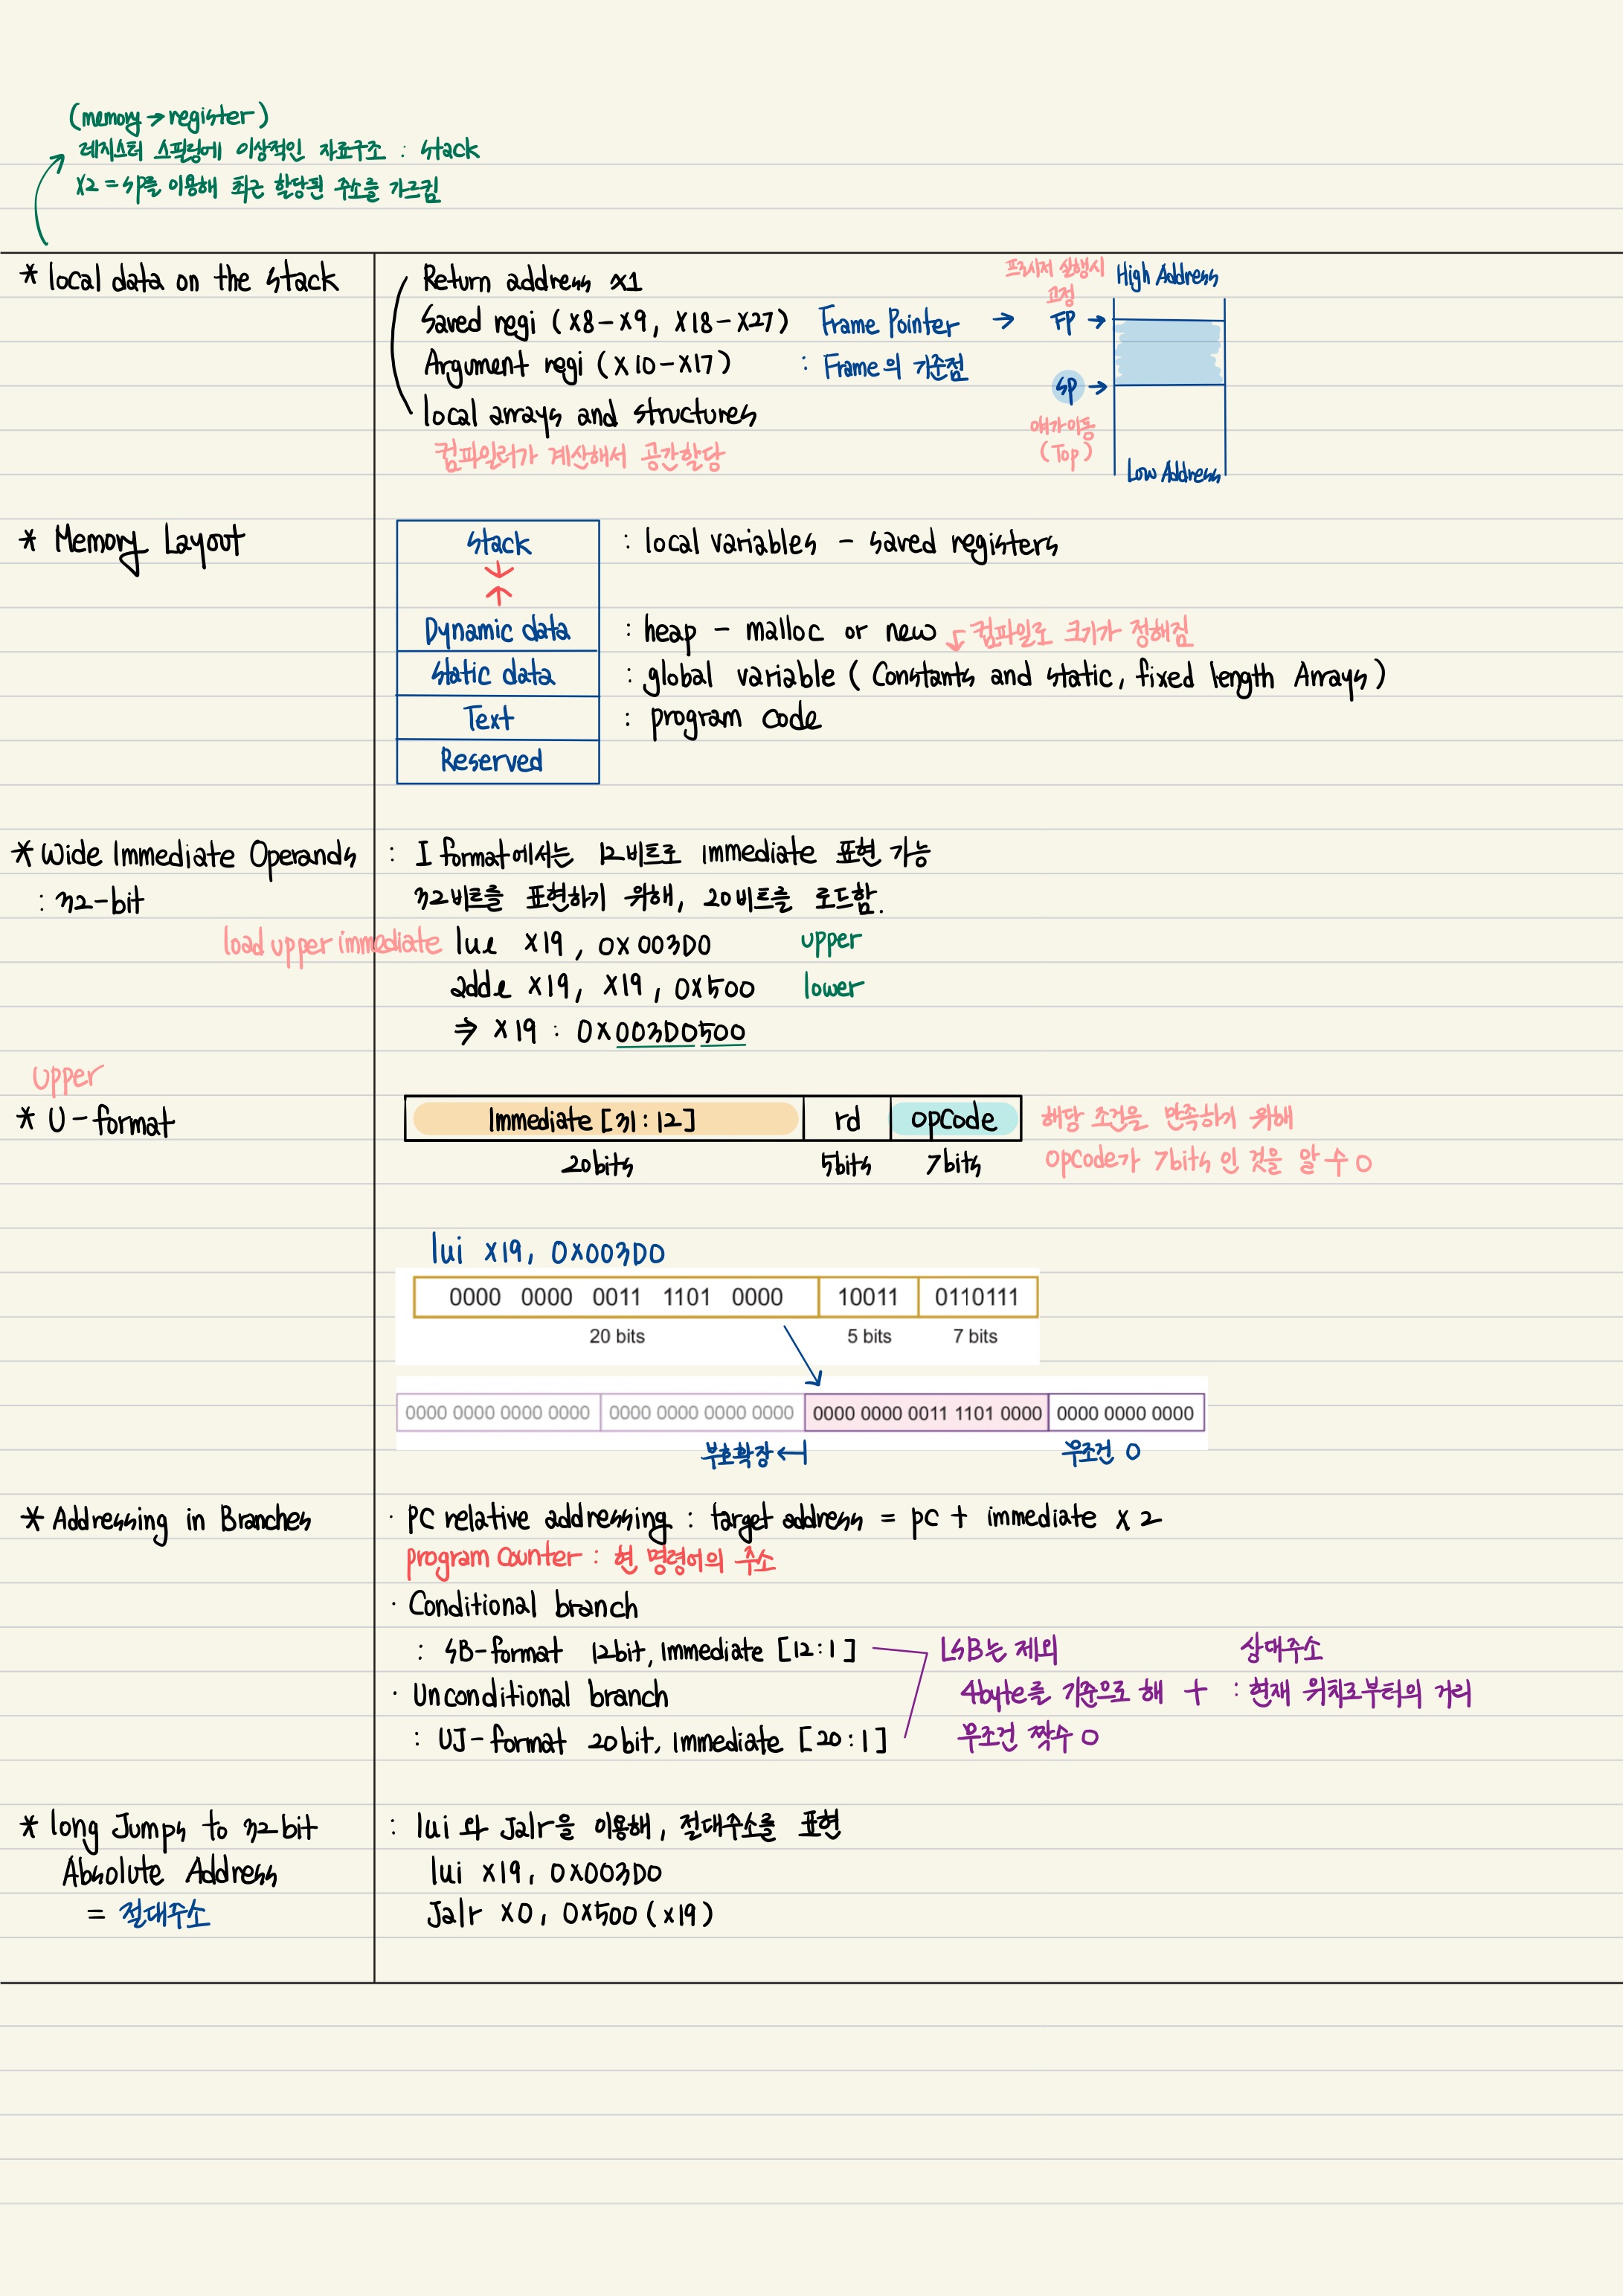 (memory → register)
레지스터 스필링에 이상적인 자료구조 : stack
X2 = SP를 이용해 최근 할당된 주소를 가르킴
* local data on the stack
Return address x1
Saved regi (X8-X9, X18-X27)
Argument regi (X10-X17)
local arrays and structures
컴파일러가 계산해서 공간할당
Frame Pointer →
: Frame의 기준점
프로시저 실행시
고정
FP →
SP →
얘가 이동
(Top)
High Address
Low Address
* Memory Layout
stack
: local variables - saved registers
Dynamic data
: heap - malloc or new
컴파일로 크기가 정해짐
Static data
: global variable (Constants and static, fixed length Arrays)
Text
: program code
Reserved
* Wide Immediate Operands
: 32-bit
: I format에서는 12비트로 immediate 표현 가능
32비트를 표현하기 위해, 20비트를 로드함.
load upper immediate
lue X19, 0X003D0 upper
adde X19, X19, 0X500 lower
⇒ X19 : 0X003D0500
Upper
* U-format
Immediate [31:12] rd opCode
20bits 5bits 7bits
해당 조건을 만족하기 위해
opCode가 7bits인 것을 알 수 O
lui X19, 0X003D0
0000 0000 0011 1101 0000 10011 0110111
20 bits 5 bits 7 bits
0000 0000 0000 0000 0000 0000 0000 0000 0000 0000 0011 1101 0000 0000 0000 0000
부호확장 무조건 0
* Addressing in Branches
· PC relative addressing : target address = pc + immediate X 2
program Counter : 현 명령어의 주소
· Conditional branch
: SB-format 12bit, Immediate [12:1]
· Unconditional branch
: UJ-format 20bit, Immediate [20:1]
LSB는 제외
4byte를 기준으로 해 +
무조건 짝수 0
상대주소
: 현재 위치로부터의 거리
* long Jumps to 32bit
Absolute Address
= 절대주소
: lui 와 Jalr을 이용해, 절대주소를 표현
lui X19, 0X003D0
Jalr X0, 0X500 (x19)